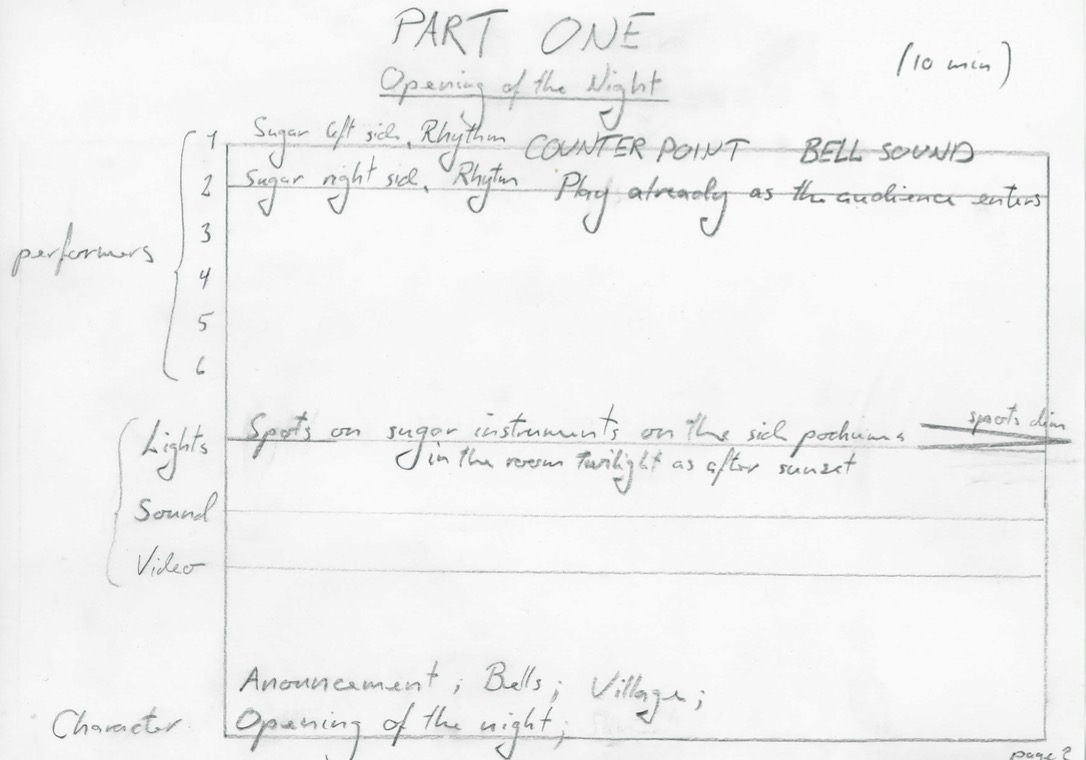 PART ONE
(10 min)
Opening of the Night
performers
1 Sugar left side, Rhythm COUNTER POINT BELL SOUND
2 Sugar right side, Rhytm Play already as the audience enters
3
4
5
6
Lights Spots on sugar instruments on the side podiums spots dim
in the room twilight as after sunset
Sound
Video
Anouncement ; Bells ; Village ;
Character Opening of the night ;
page 2